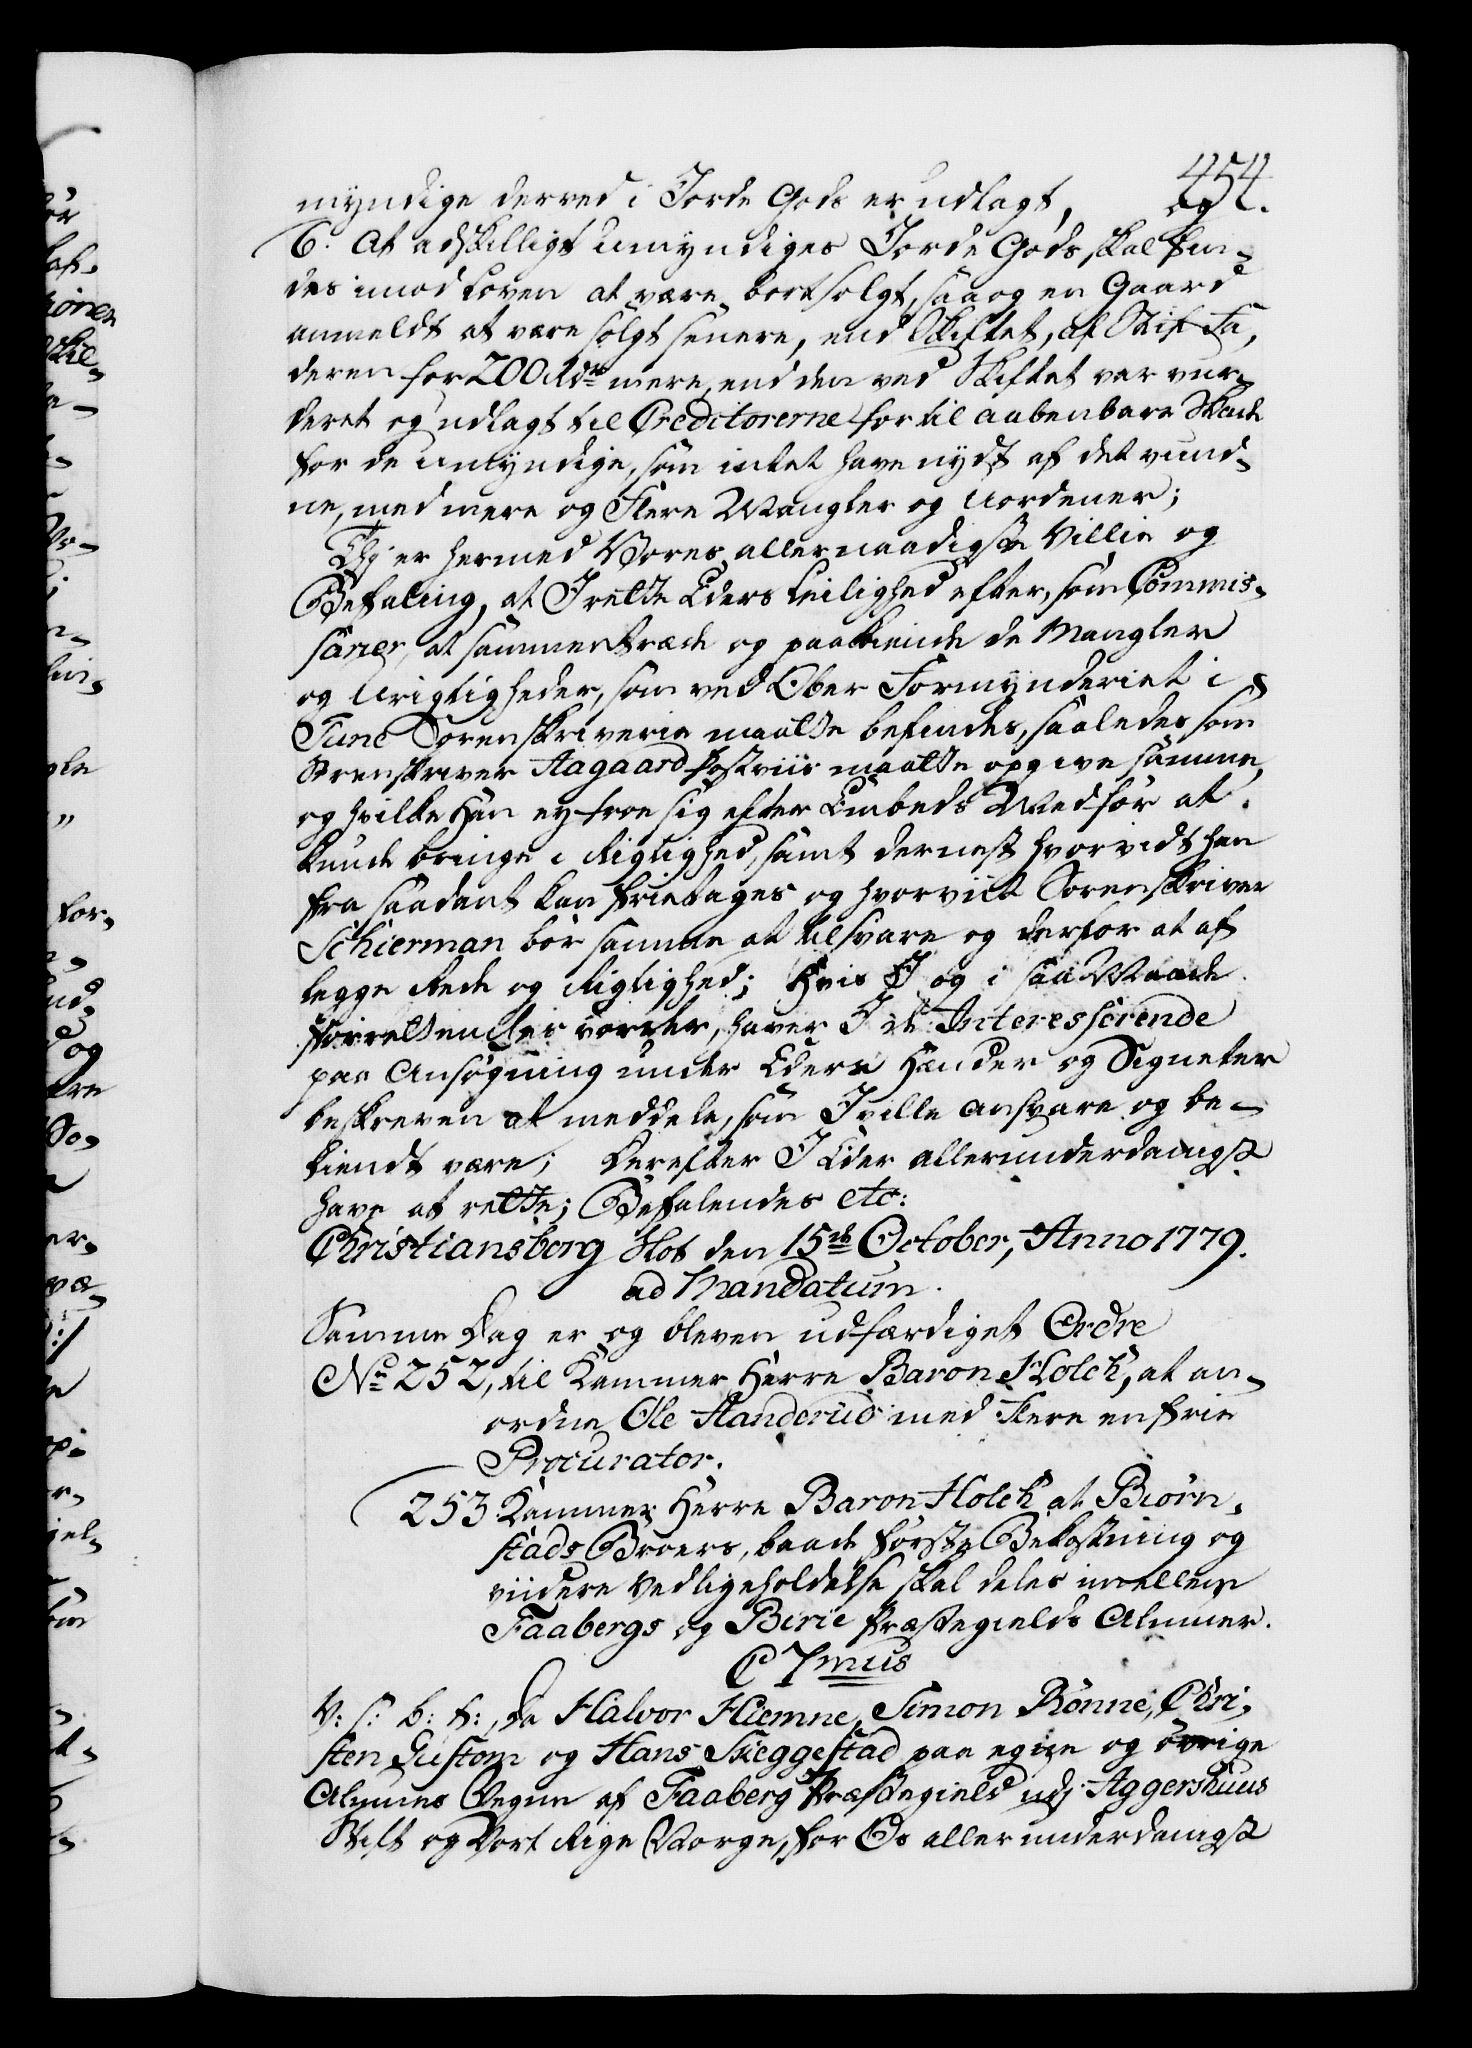 454.
myndige derved i Jorde Gods er udlagt, og
6. At adskilligt Umyndiges Jorde Gods, skal fin-
des imod Loven at være bortsolgt, saa og en Gaard
anmeldt at være solgt senere, end Skiftet, af Stif Fa,
deren for 200 Rdr mere, end den ved Skiftet var vur-
deret og udlagt til Creditorerne for til aabenbare Skade
for de umyndige, som intet have nydt af det vund-
ne, med mere og flere Mangler og Uordener;
Thj er hermed Vores allernaadigste Villie og
Befaling, at I rette Eders Leilighed efter, som Commis-
sarier, at sammentræde og paakiende de Mangler
og Urigtigheder, som ved Ober Formynderiet i
Tune Sorenskriverie maatte befindes, saaledes som
Sorenskriver Aagaard maatte opgive samme,
og hvilke Han ey troe sig efter Embeds Medfør at
kunde bringe i Rigtighed, samt dernest hvorvidt han
fra saadant kan fritages og hvorvidt Sorenskriver
Schierman bør samme at tilsvare og derfor at af
legge Rede og Rigtighed; Hvis I og i saa Maade
forrettendes vorder, haver I de Interesserende
paa Ansøgning under Eders Hænder og Signeter
beskreven at meddele, som I ville ansvare og be-
kiendt være; Derefter I Eder allerunderdanigst
have at rette; Befalendes etc:
Christiansborg Slot den 15de October, Anno 1779.
ad Mandatum.
Samme Dag er og bleven udfærdiget Ordre
No 252, til Kammer Herre Baron Holck, at an-
ordne Ole Handerud med flere en frie
Procurator.
253 Kammer Herre Baron Holck at Biørn-
stads Broers, baade første Bekostning og
viidere Vedligeholdelse skal deles imellem
Faabergs og Birie Præstegields Almuer.
C 7mus
V: s: b: t:, da Halvor Hiemne, Simon Rønne, Chri-
sten Lustom og Hans Skeggestad paa egne og øvrige
Almues Vegne af Faaberg Præstegield udj Aggershuus
Stift og Vort Rige Norge, for Os allerunderdanigst